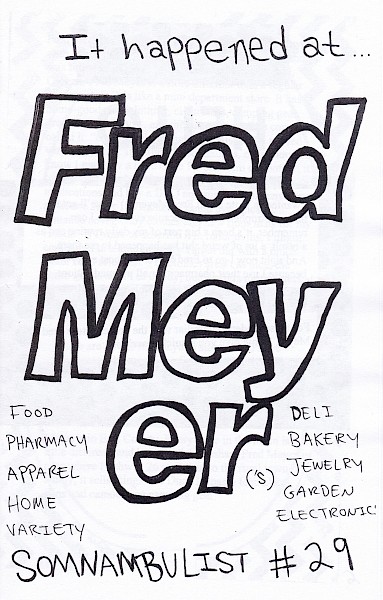 It happened at...
Fred
Mey
er
('s)
FOOD
PHARMACY
APPAREL
HOME
VARIETY
DELI
BAKERY
JEWELRY
GARDEN
ELECTRONIC
SOMNAMBULIST #29